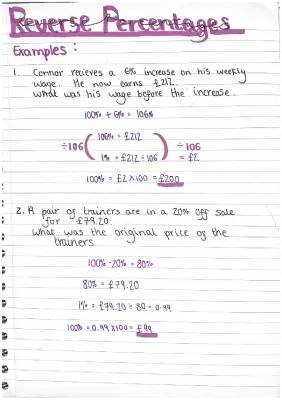 Reverse Percentages
Examples :
1. Connor recieves a 6% increase on his weekly
wage. He now earns £212.
What was his wage before the increase.
100% + 6% = 106%
106% = £212
÷106 ÷106
1% = £212 ÷ 106 = £2
100% = £2 x 100 = £200
2. A pair of trainers are in a 20% off sale
for £79.20.
What was the original price of the
trainers.
100% - 20% = 80%
80% = £79.20
1% = £79.20 ÷ 80 = 0.99
100% = 0.99 x 100 = £99